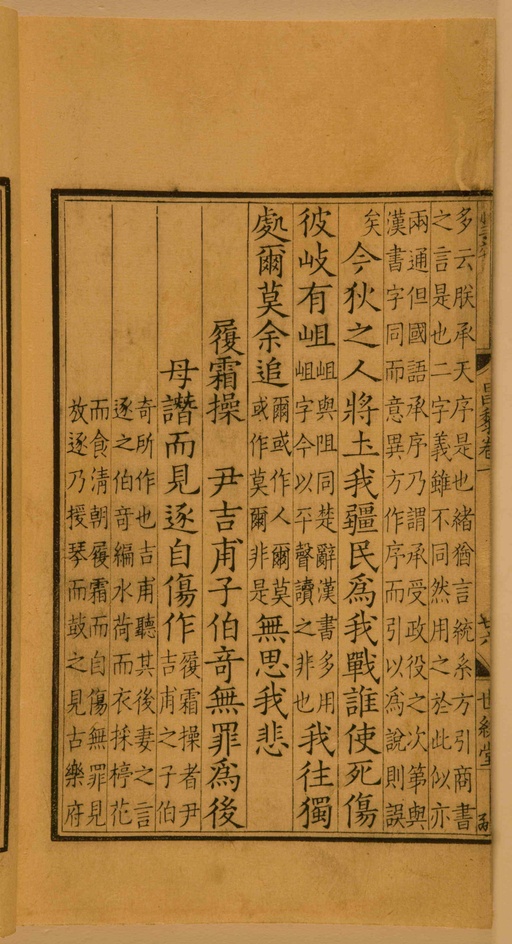 昌黎卷一 世綵堂
多云朕承天序是也緒猶言統系方引商書
之言是也二字義雖不同然用之於此似亦
兩通但國語承序乃謂承受政役之次第與
漢書字同而意異方作序而引以爲說則誤
矣今狄之人將土我疆民爲我戰誰使死傷
彼岐有岨岨與阻同楚辭漢書多用岨字今以平聲讀之非也我往獨
處爾莫余追爾或作人爾莫或作莫爾非是無思我悲
履霜操 尹吉甫子伯奇無罪爲後
母譖而見逐自傷作履霜操者尹吉甫之子伯
奇所作也吉甫聽其後妻之言
逐之伯奇編水荷而衣採楟花
而食清朝履霜而自傷無罪見
放逐乃援琴而鼓之見古樂府